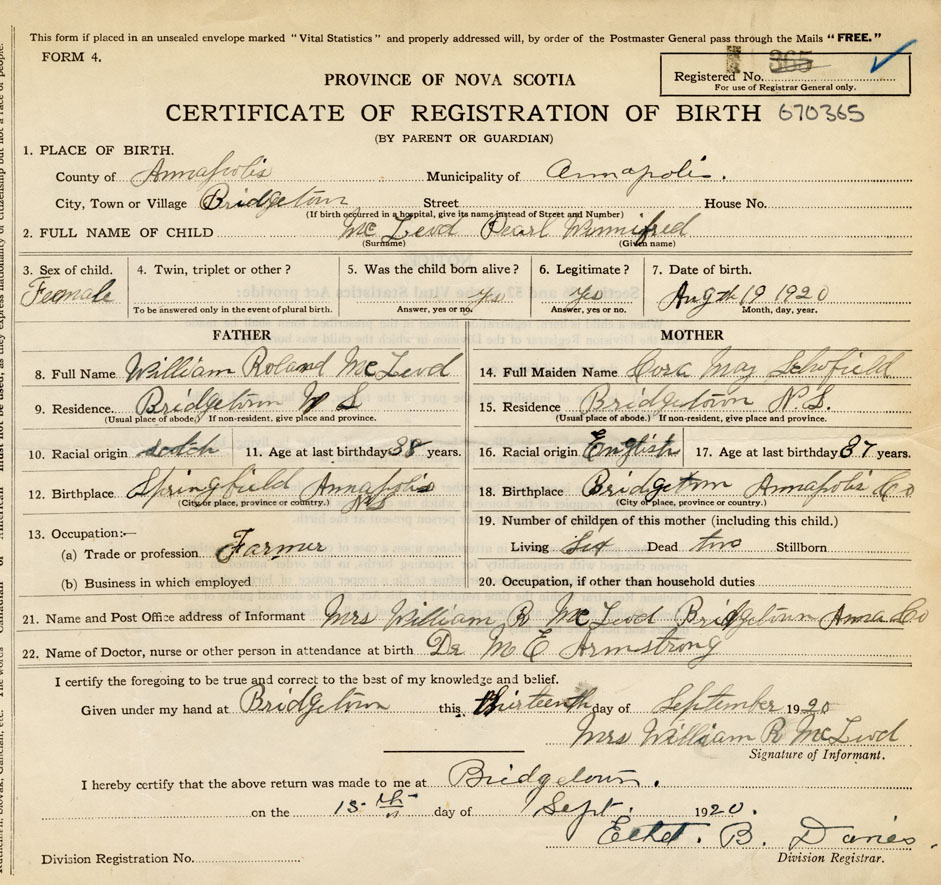 This form if placed in an unsealed envelope marked "Vital Statistics" and properly addressed will, by order of the Postmaster General pass through the Mails "FREE."
FORM 4.
365
Registered No.
For use of Registrar General only.
PROVINCE OF NOVA SCOTIA
CERTIFICATE OF REGISTRATION OF BIRTH 670365
(BY PARENT OR GUARDIAN)
1. PLACE OF BIRTH.
County of Annapolis Municipality of Annapolis.
City, Town or Village Bridgetown Street House No.
(If birth occurred in a hospital, give its name instead of Street and Number)
2. FULL NAME OF CHILD McLeod Pearl Winnifred
(Surname) (Given name)
3. Sex of child. 4. Twin, triplet or other? 5. Was the child born alive? 6. Legitimate? 7. Date of birth.
Female Yes Yes Augth 19 1920
To be answered only in the event of plural birth. Answer, yes or no. Answer, yes or no. Month, day, year.
FATHER
8. Full Name William Roland McLeod
9. Residence. Bridgetown N S
(Usual place of abode.) If non-resident, give place and province.
10. Racial origin scotch 11. Age at last birthday 38 years.
12. Birthplace Springfield Annapolis
(City or place, province or country.) NS
13. Occupation:—
(a) Trade or profession Farmer
(b) Business in which employed
MOTHER
14. Full Maiden Name Cora May Schofield
15. Residence Bridgetown N.S.
(Usual place of abode.) If non-resident, give place and province.
16. Racial origin English 17. Age at last birthday 37 years.
18. Birthplace Bridgetown Annapolis Co
(City or place, province or country.)
19. Number of children of this mother (including this child.)
Living Six Dead two Stillborn
20. Occupation, if other than household duties
21. Name and Post Office address of Informant Mrs William R McLeod Bridgetown Anna Co
22. Name of Doctor, nurse or other person in attendance at birth Dr M E Armstrong
I certify the foregoing to be true and correct to the best of my knowledge and belief.
Given under my hand at Bridgetown this thirteenth day of September 1920
Mrs William R McLeod
Signature of Informant.
I hereby certify that the above return was made to me at Bridgetown.
on the 13th day of Sept. 1920.
Ethel. B. Davies.
Division Registration No. Division Registrar.